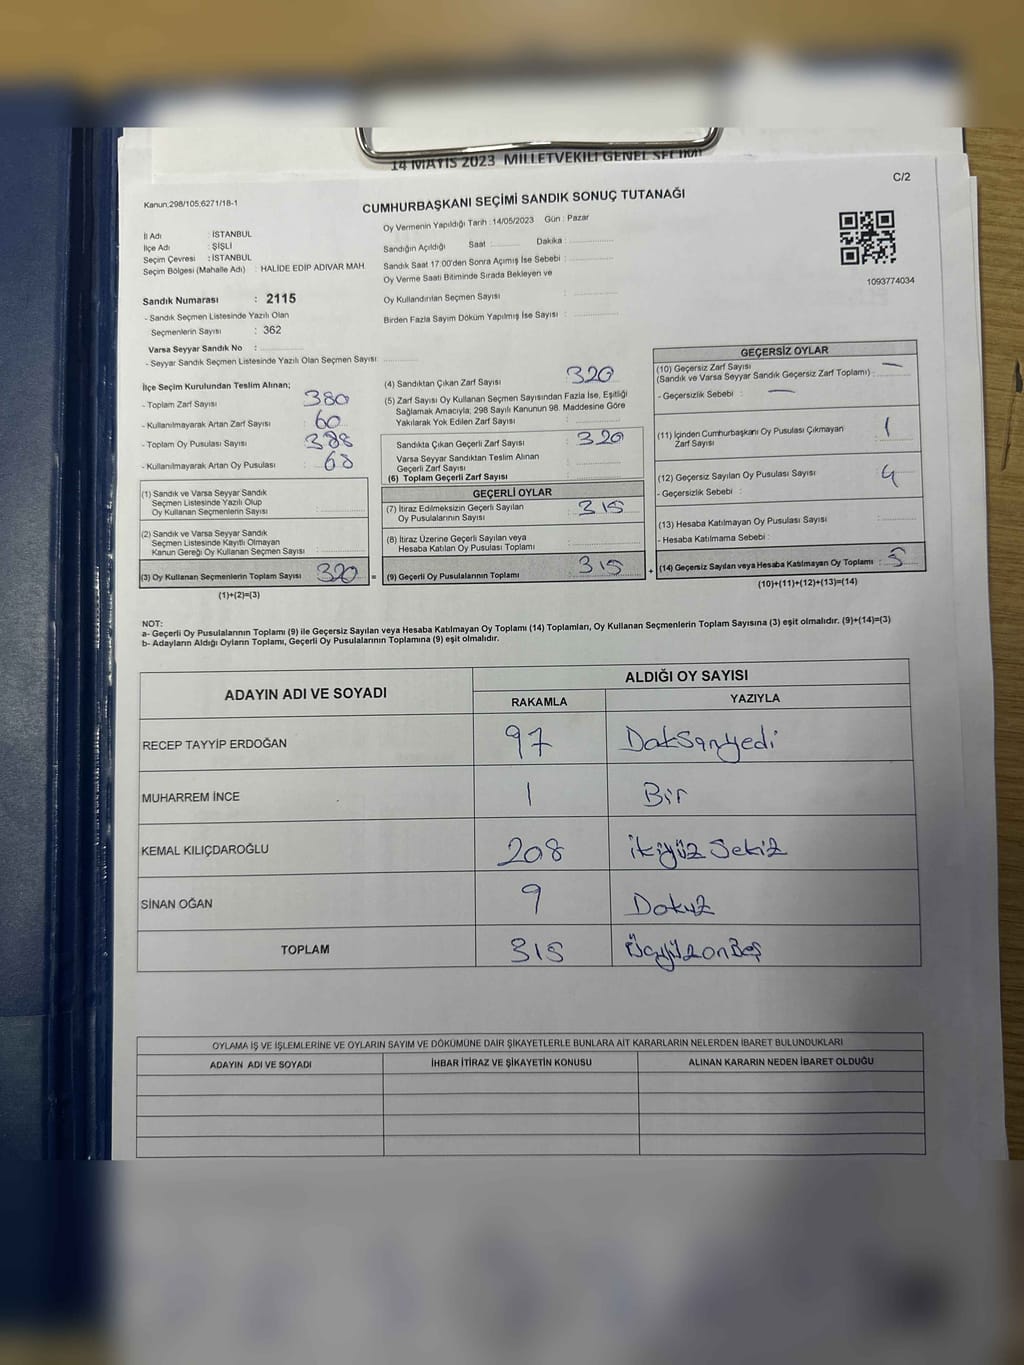 14 MAYIS 2023 MİLLETVEKİLİ GENEL SEÇİMİ
C/2
Kanun,298/105,6271/18-1
CUMHURBAŞKANI SEÇİMİ SANDIK SONUÇ TUTANAĞI
Oy Vermenin Yapıldığı Tarih :14/05/2023 Gün : Pazar
İl Adı : İSTANBUL
İlçe Adı : ŞİŞLİ
Seçim Çevresi : İSTANBUL
Seçim Bölgesi (Mahalle Adı) : HALİDE EDİP ADIVAR MAH
Sandığın Açıldığı Saat : Dakika :
Sandık Saat 17:00'den Sonra Açımış İse Sebebi :
Oy Verme Saati Bitiminde Sırada Bekleyen ve
Oy Kullandırılan Seçmen Sayısı :
Birden Fazla Sayım Döküm Yapılmış İse Sayısı :
1093774034
Sandık Numarası : 2115
- Sandık Seçmen Listesinde Yazılı Olan
Seçmenlerin Sayısı : 362
Varsa Seyyar Sandık No :
- Seyyar Sandık Seçmen Listesinde Yazılı Olan Seçmen Sayısı :
İlçe Seçim Kurulundan Teslim Alınan;
- Toplam Zarf Sayısı : 380
- Kullanılmayarak Artan Zarf Sayısı : 60
- Toplam Oy Pusulası Sayısı : 388
- Kullanılmayarak Artan Oy Pusulası : 68
(1) Sandık ve Varsa Seyyar Sandık
Seçmen Listesinde Yazılı Olup
Oy Kullanan Seçmenlerin Sayısı :
(2) Sandık ve Varsa Seyyar Sandık
Seçmen Listesinde Kayıtlı Olmayan
Kanun Gereği Oy Kullanan Seçmen Sayısı :
(3) Oy Kullanan Seçmenlerin Toplam Sayısı 320 =
(1)+(2)=(3)
(4) Sandıktan Çıkan Zarf Sayısı : 320
(5) Zarf Sayısı Oy Kullanan Seçmen Sayısından Fazla İse, Eşitliği
Sağlamak Amacıyla; 298 Sayılı Kanunun 98. Maddesine Göre
Yakılarak Yok Edilen Zarf Sayısı :
Sandıkta Çıkan Geçerli Zarf Sayısı : 320
Varsa Seyyar Sandıktan Teslim Alınan
Geçerli Zarf Sayısı :
(6) Toplam Geçerli Zarf Sayısı :
GEÇERLİ OYLAR
(7) İtiraz Edilmeksizin Geçerli Sayılan
Oy Pusulalarının Sayısı : 315
(8) İtiraz Üzerine Geçerli Sayılan veya
Hesaba Katılan Oy Pusulası Toplamı :
(9) Geçerli Oy Pusulalarının Toplamı : 315 +
GEÇERSİZ OYLAR
(10) Geçersiz Zarf Sayısı —
(Sandık ve Varsa Seyyar Sandık Geçersiz Zarf Toplamı) :
- Geçersizlik Sebebi : —
(11) İçinden Cumhurbaşkanı Oy Pusulası Çıkmayan
Zarf Sayısı : 1
(12) Geçersiz Sayılan Oy Pusulası Sayısı : 4
- Geçersizlik Sebebi :
(13) Hesaba Katılmayan Oy Pusulası Sayısı :
- Hesaba Katılmama Sebebi :
(14) Geçersiz Sayılan veya Hesaba Katılmayan Oy Toplamı : 5
(10)+(11)+(12)+(13)=(14)
NOT:
a- Geçerli Oy Pusulalarının Toplamı (9) ile Geçersiz Sayılan veya Hesaba Katılmayan Oy Toplamı (14) Toplamları, Oy Kullanan Seçmenlerin Toplam Sayısına (3) eşit olmalıdır. (9)+(14)=(3)
b- Adayların Aldığı Oyların Toplamı, Geçerli Oy Pusulalarının Toplamına (9) eşit olmalıdır.
ADAYIN ADI VE SOYADI
ALDIĞI OY SAYISI
RAKAMLA YAZIYLA
RECEP TAYYİP ERDOĞAN 97 Doksanyedi
MUHARREM İNCE 1 Bir
KEMAL KILIÇDAROĞLU 208 ikiyüz Sekiz
SİNAN OĞAN 9 Dokuz
TOPLAM 315 ÜçyüzonBeş
OYLAMA İŞ VE İŞLEMLERİNE VE OYLARIN SAYIM VE DÖKÜMÜNE DAİR ŞİKAYETLERLE BUNLARA AİT KARARLARIN NELERDEN İBARET BULUNDUKLARI
ADAYIN ADI VE SOYADI İHBAR İTİRAZ VE ŞİKAYETİN KONUSU ALINAN KARARIN NEDEN İBARET OLDUĞU